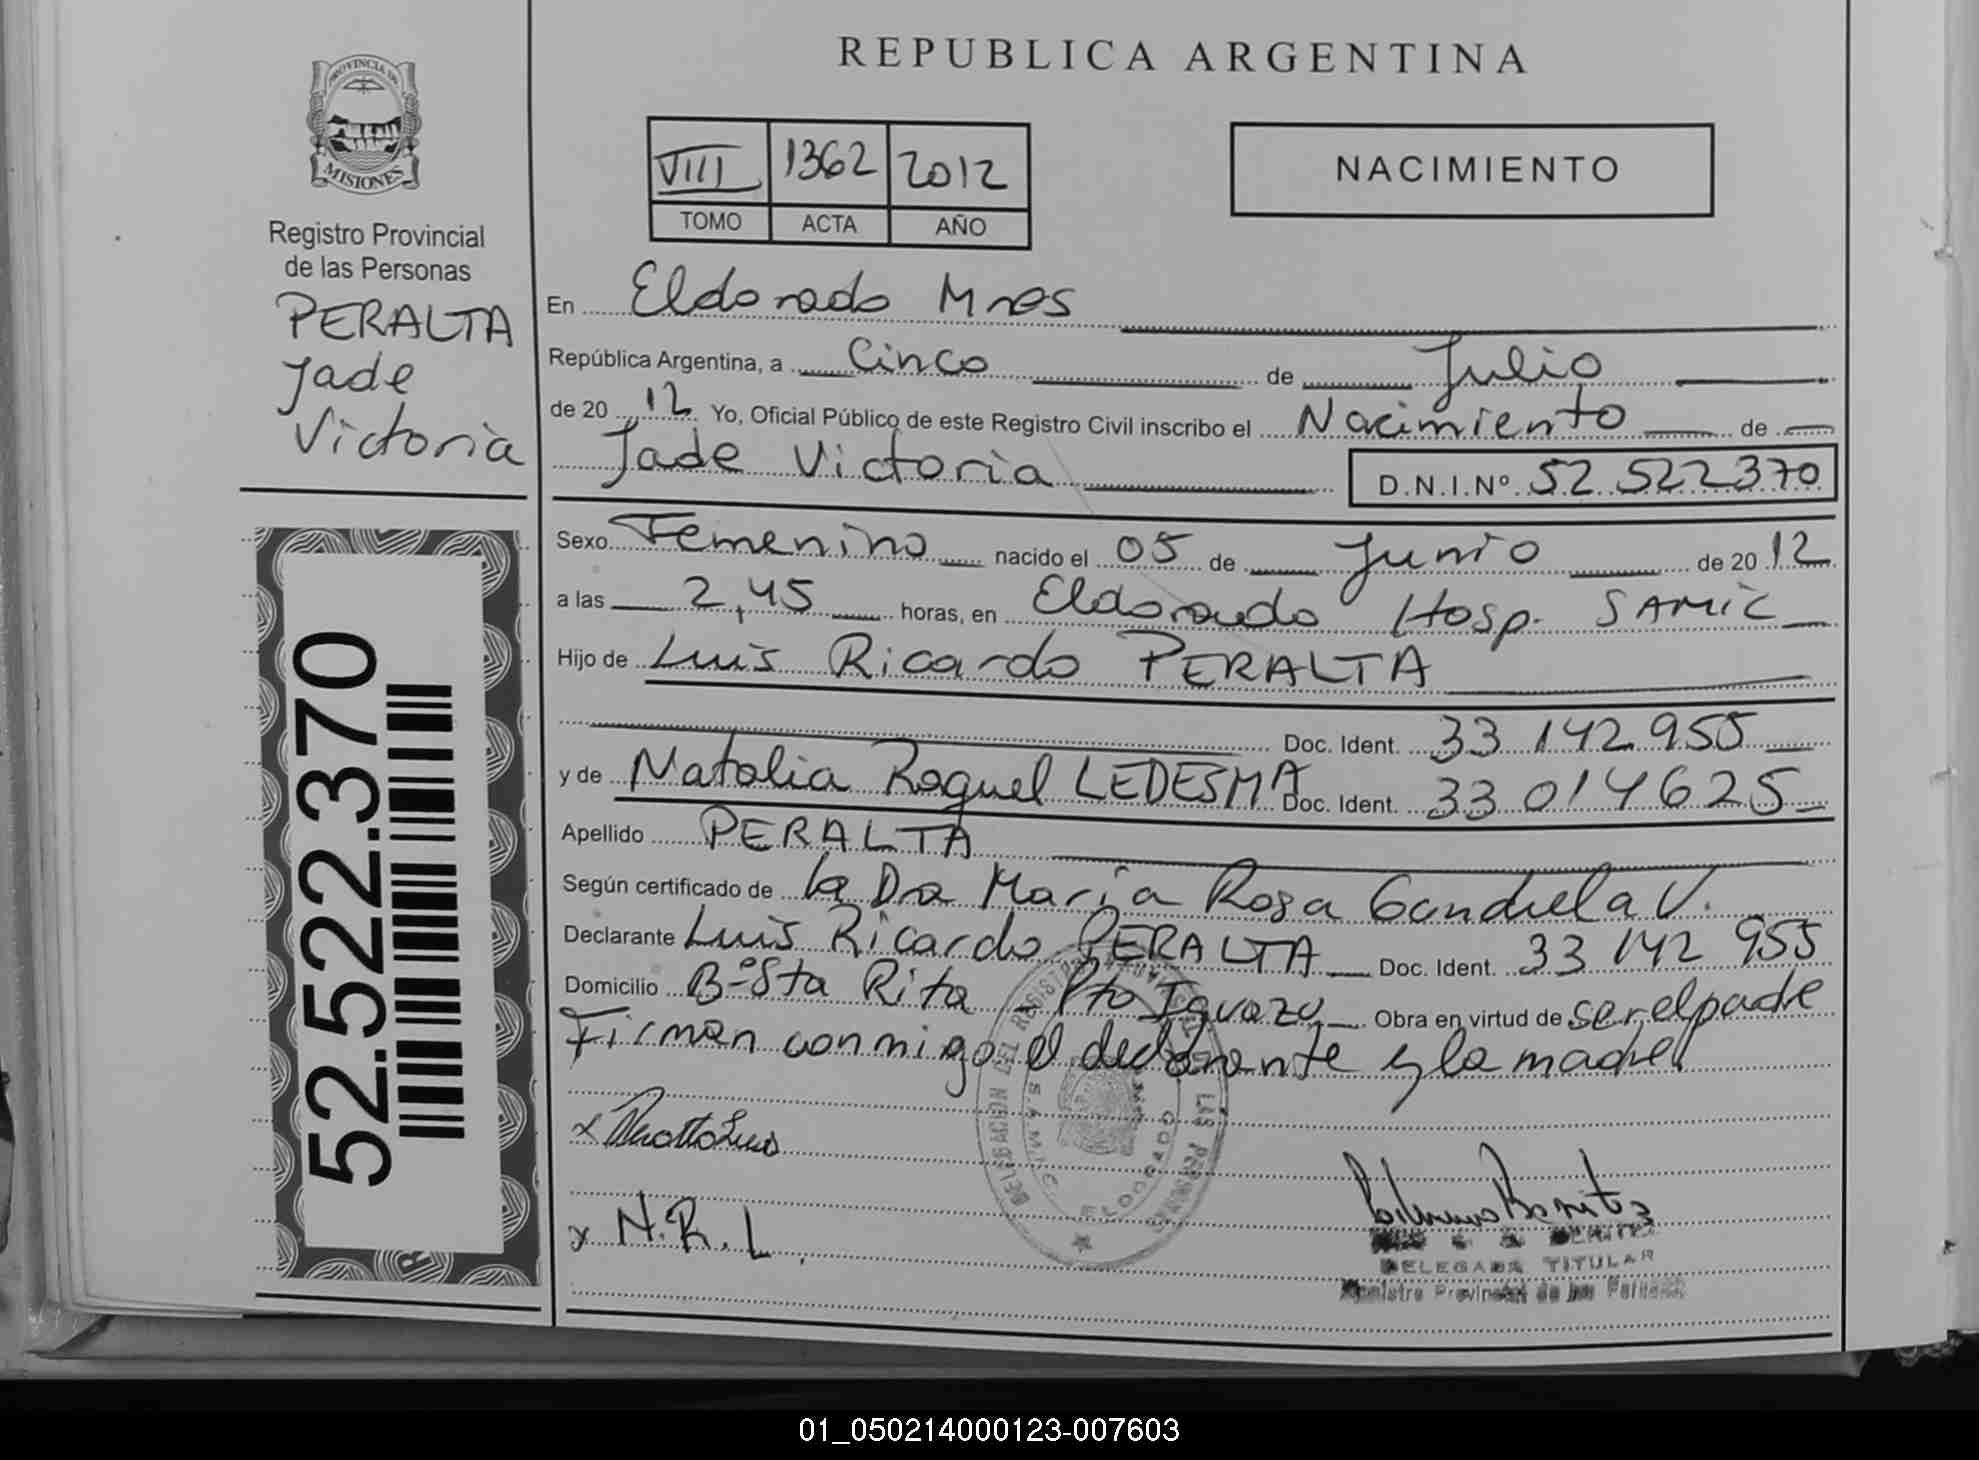 PROVINCIA DE
MISIONES
Registro Provincial
de las Personas
PERALTA
Jade
Victoria
52.522.370
REPUBLICA ARGENTINA
VIII 1362 2012
TOMO ACTA AÑO
NACIMIENTO
En Eldorado Mnes
República Argentina, a Cinco de Julio
de 20 12 Yo, Oficial Público de este Registro Civil inscribo el Nacimiento de
Jade Victoria D.N.I.Nº 52.522.370
Sexo Femenino nacido el 05 de Junio de 20 12
a las 2,45 horas, en Eldorado Hosp. SAMIC
Hijo de Luis Ricardo PERALTA
Doc. Ident. 33 142 955
y de Natalia Raquel LEDESMA Doc. Ident. 33 014 625
Apellido PERALTA
Según certificado de la Dra Maria Rosa V.
Declarante Luis Ricardo PERALTA Doc. Ident. 33 142 955
Domicilio Bº Sta Rita Pto Iguazu Obra en virtud de ser el padre
Firman conmigo el declarante y la madre
x
x N.R.L.
DELEGACION DEL REGISTRO LAS PERSONAS
S.A.M.I.C. ELDORADO
BENITEZ
DELEGADA TITULAR
Registro Provincial de las Personas
01_050214000123-007603